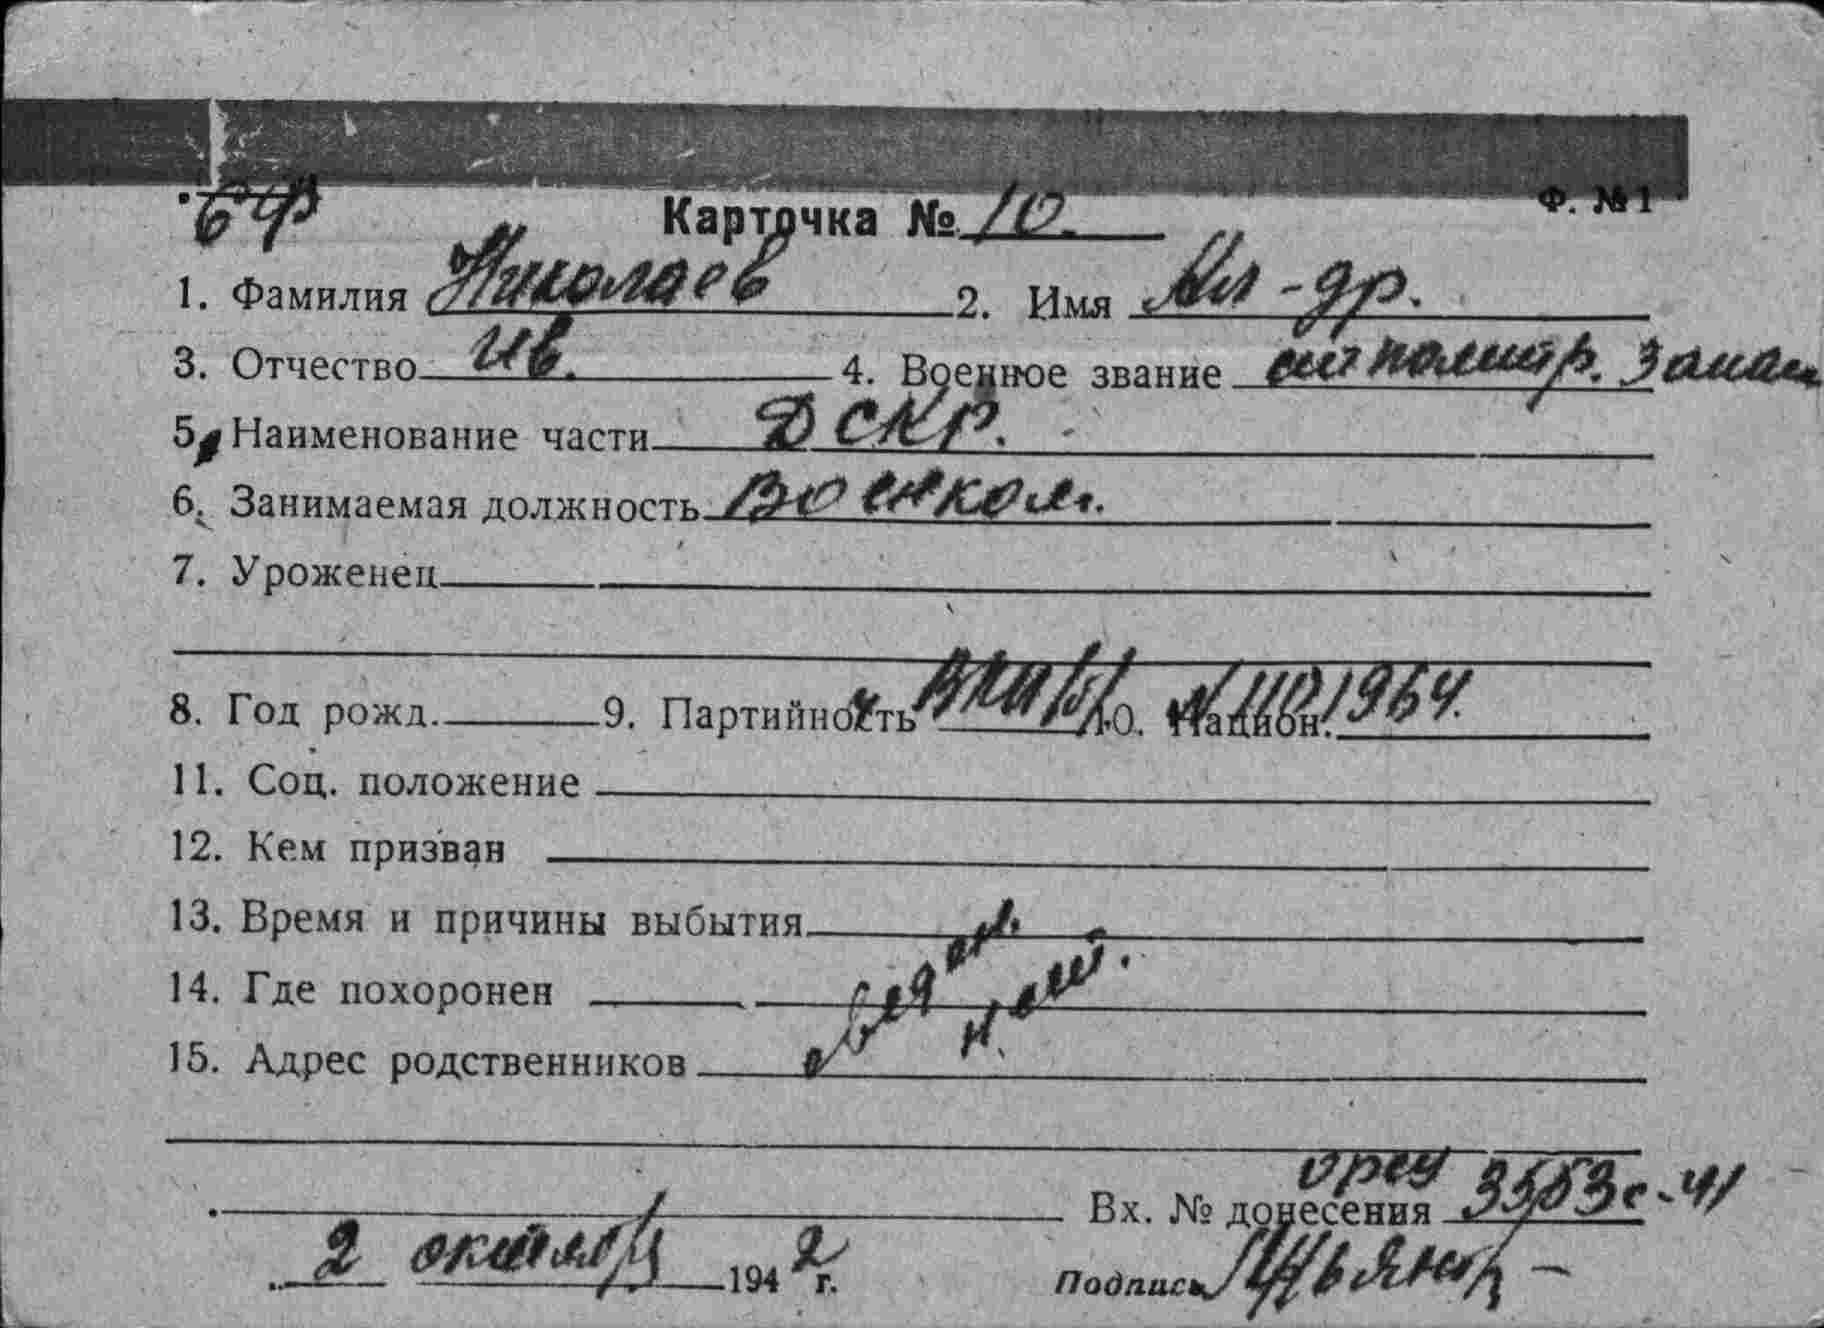 БФ
Ф. №1
Карточка № 10.
1. Фамилия Николаев 2. Имя Ал-др.
3. Отчество Ив. 4. Военное звание ст политр. запаса
5. Наименование части ДСКР.
6. Занимаемая должность Военком.
7. Уроженец
8. Год рожд. 9. Партийность ВКП/б/ 10. Национ. №1101964.
11. Соц. положение
12. Кем призван
13. Время и причины выбытия
14. Где похоронен
15. Адрес родственников
сведен. нет.
Вх. № донесения 3553с-41
2 октября 1942 г. Подпись